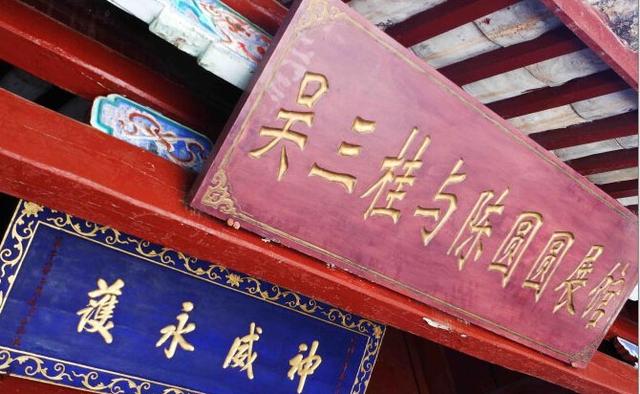 吴三桂与陈圆圆展馆
護永威神